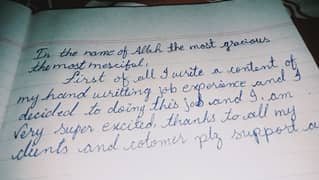 In the name of Allah the most gracious
the most merciful,
First of all I write a content of
my hand writting job experience and I
decided to doing this job and I, am
Very super excited, thanks to all my
clients and cotomer plz support